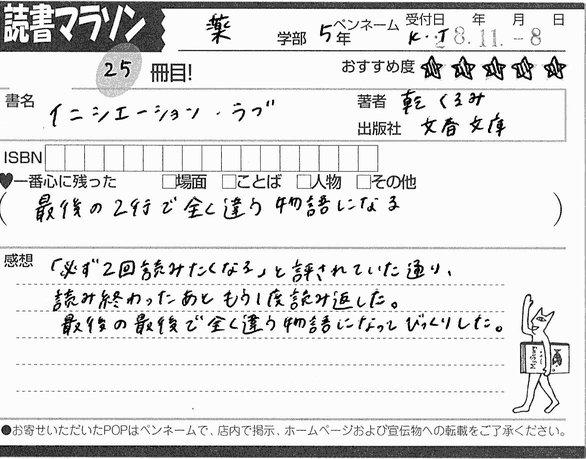 読書マラソン
薬 学部 5年 ペンネーム K.T 受付日 年 月 日 28.11.-8
25 冊目! おすすめ度 ★★★★★
書名 イニシエーション・ラブ
著者 乾くるみ
出版社 文春文庫
ISBN
♥一番心に残った □場面 □ことば □人物 □その他
(最後の2行で全く違う物語になる)
感想 「必ず2回読みたくなる」と評されていた通り、
読み終わったあともう1度読み返した。
最後の最後で全く違う物語になってびっくりした。
●お寄せいただいたPOPはペンネームで、店内で掲示、ホームページおよび宣伝物への転載をご了承ください。